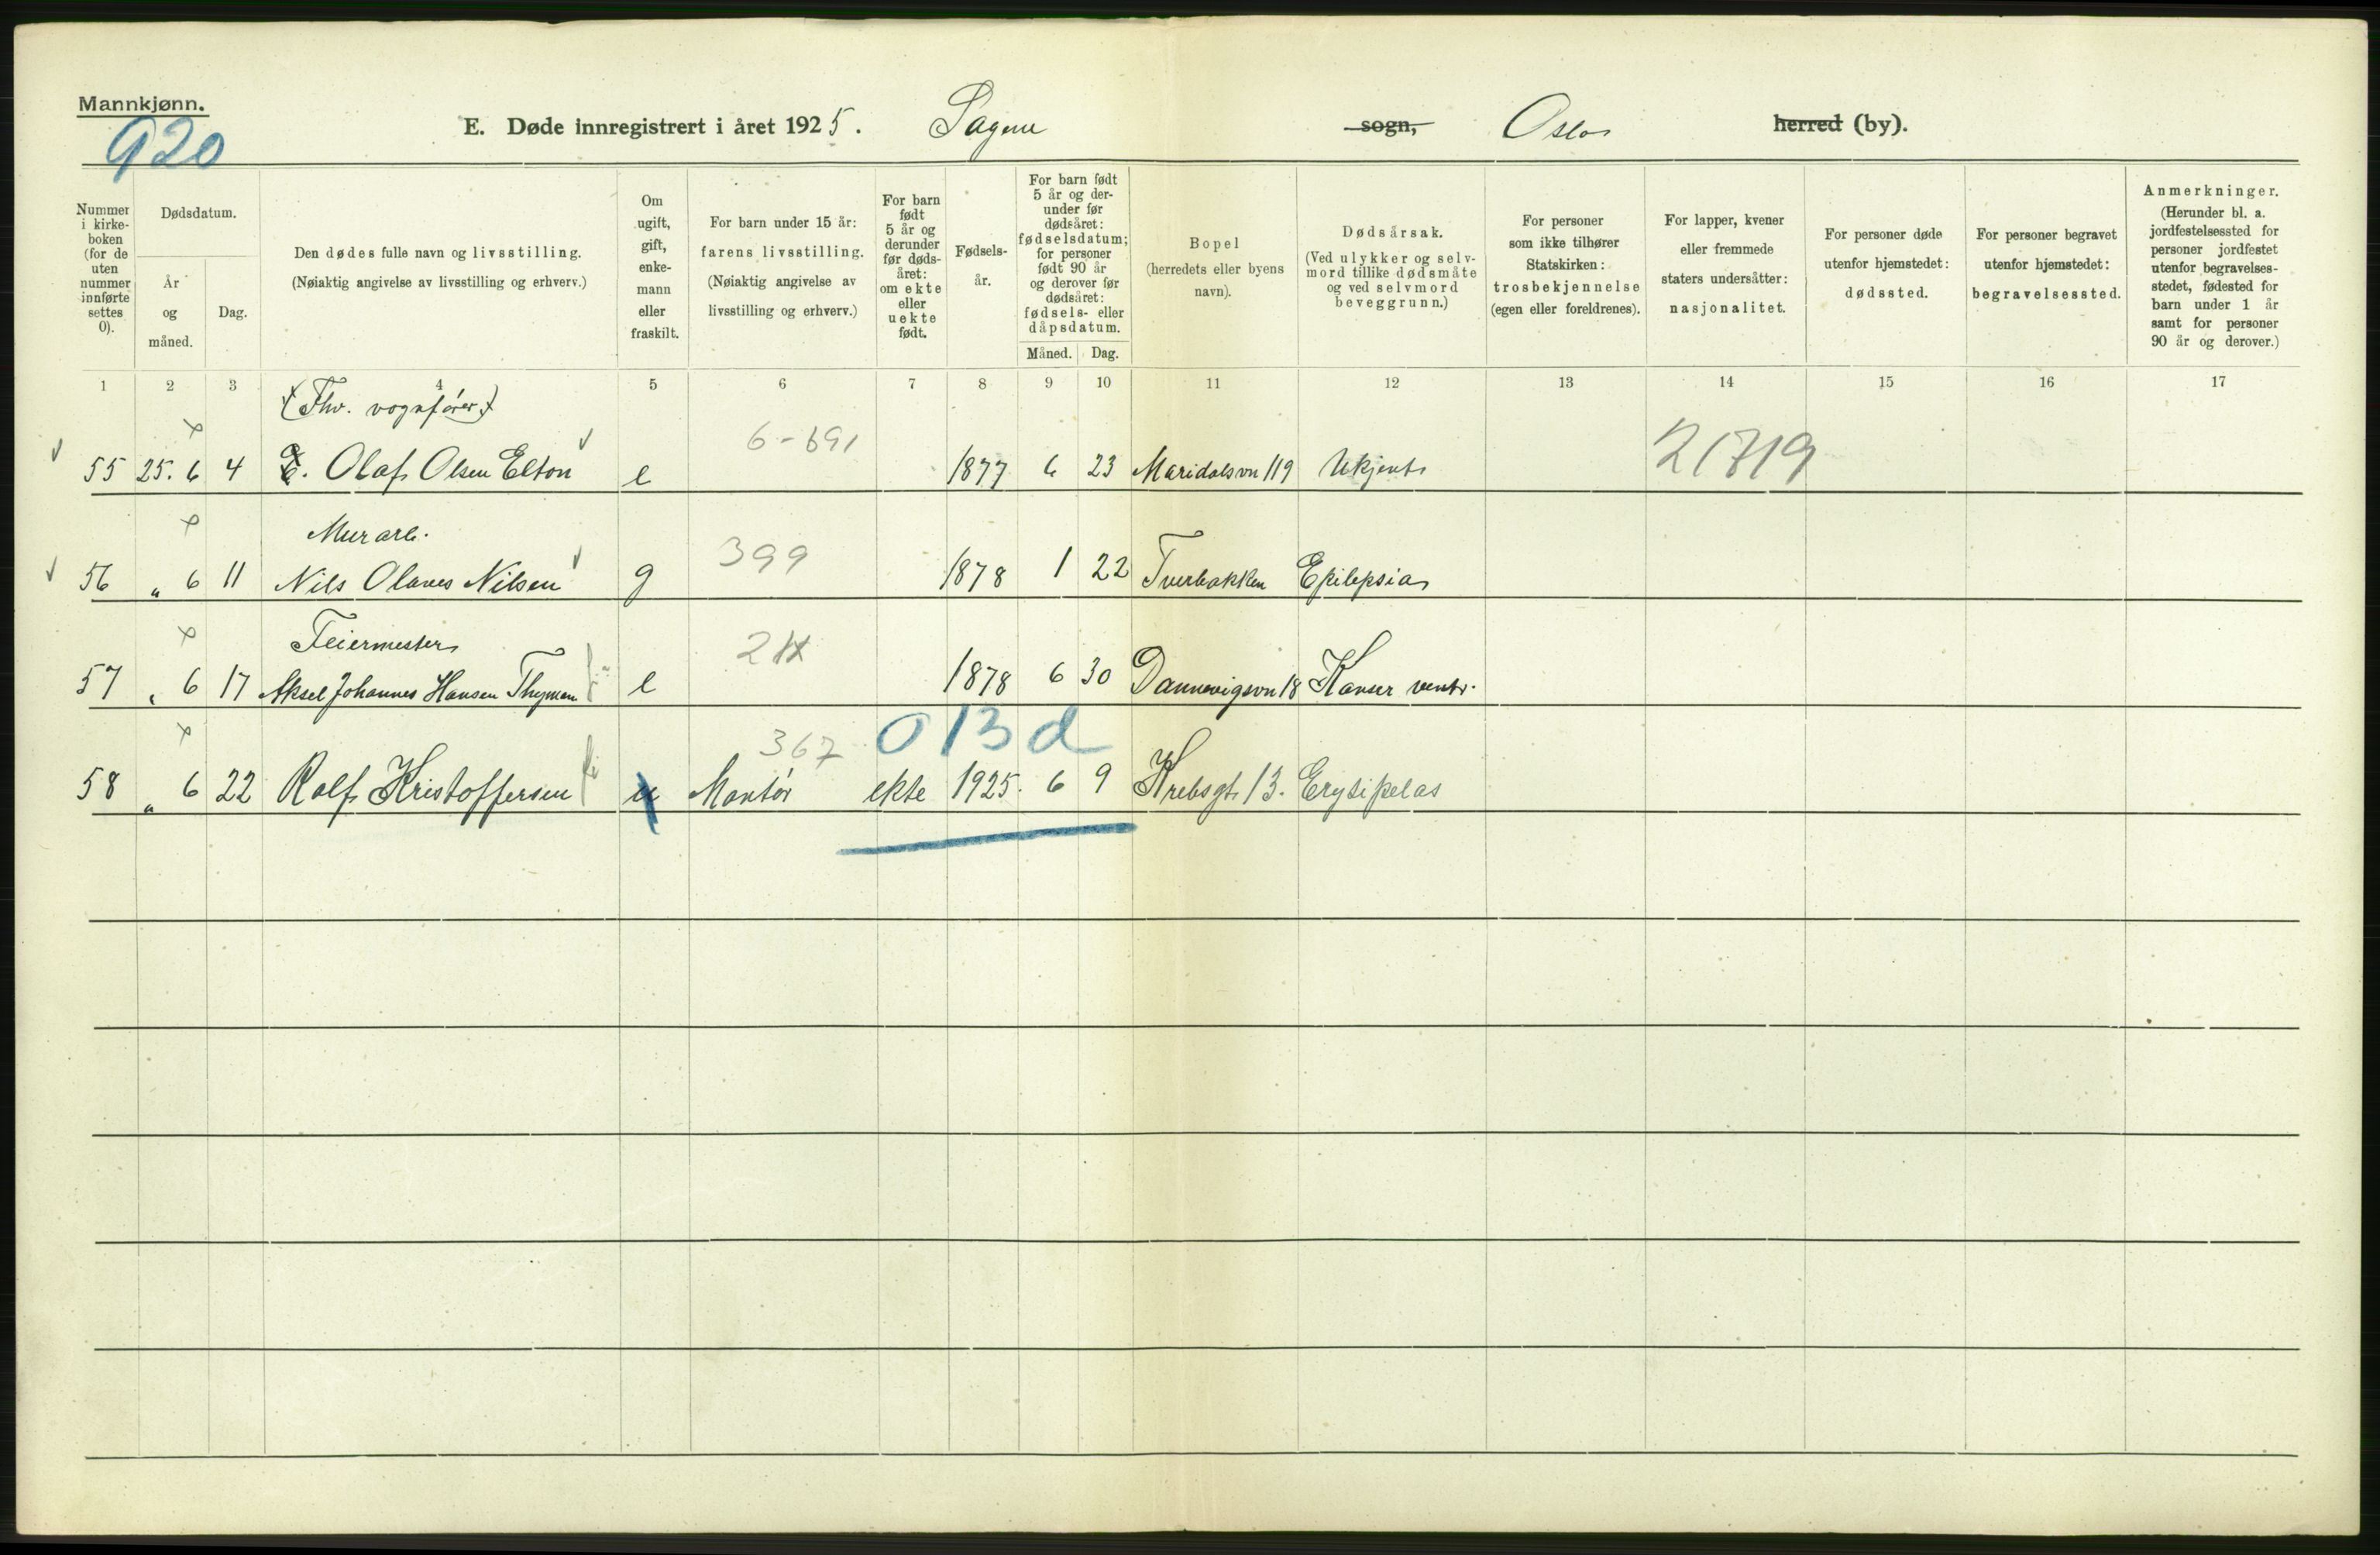 Mannkjønn.
920
E. Døde innregistrert i året 1925. Sagene sogn, Oslo herred (by).
Nummer i kirke-boken (for de uten nummer innførte settes 0).
Dødsdatum.
År og måned.
Dag.
Den dødes fulle navn og livsstilling.
(Nøiaktig angivelse av livsstilling og erhverv.)
Om ugift, gift, enke-mann eller fraskilt.
For barn under 15 år:
farens livsstilling.
(Nøiaktig angivelse av livsstilling og erhverv.)
For barn født 5 år og derunder før døds-året: om ekte eller uekte født.
Fødsels-år.
For barn født 5 år og der-under før dødsåret: fødselsdatum; for personer født 90 år og derover før dødsåret: fødsels- eller dåpsdatum.
Måned. Dag.
Bopel
(herredets eller byens navn).
Dødsårsak.
(Ved ulykker og selv-mord tillike dødsmåte og ved selvmord beveggrunn.)
For personer som ikke tilhører Statskirken:
trosbekjennelse
(egen eller foreldrenes).
For lapper, kvener eller fremmede staters undersåtter:
nasjonalitet.
For personer døde utenfor hjemstedet:
dødssted.
For personer begravet utenfor hjemstedet:
begravelsessted.
Anmerkninger.
(Herunder bl. a. jordfestelsessted for personer jordfestet utenfor begravelses-stedet, fødested for barn under 1 år samt for personer 90 år og derover.)
1 2 3 4 5 6 7 8 9 10 11 12 13 14 15 16 17
(Fhv. vognfører)
6-691
21719
55 25. 6 4 Olaf Olsen Elton e 1877 6 23 Maridalsvn 119 Ukjent
Murarb.
399
56 " 6 11 Nils Olaves Nilsen g 1878 1 22 Tverbakken Epilepsia
Feiermester
57 " 6 17 Aksel Johannes Hansen Thymen e 1878 6 30 Dannevigsvn 18 Kanser ventr.
367 013d
58 " 6 22 Rolf Kristoffersen u Montør ekte 1925. 6 9 Krebsgt. 13. Erysipelas